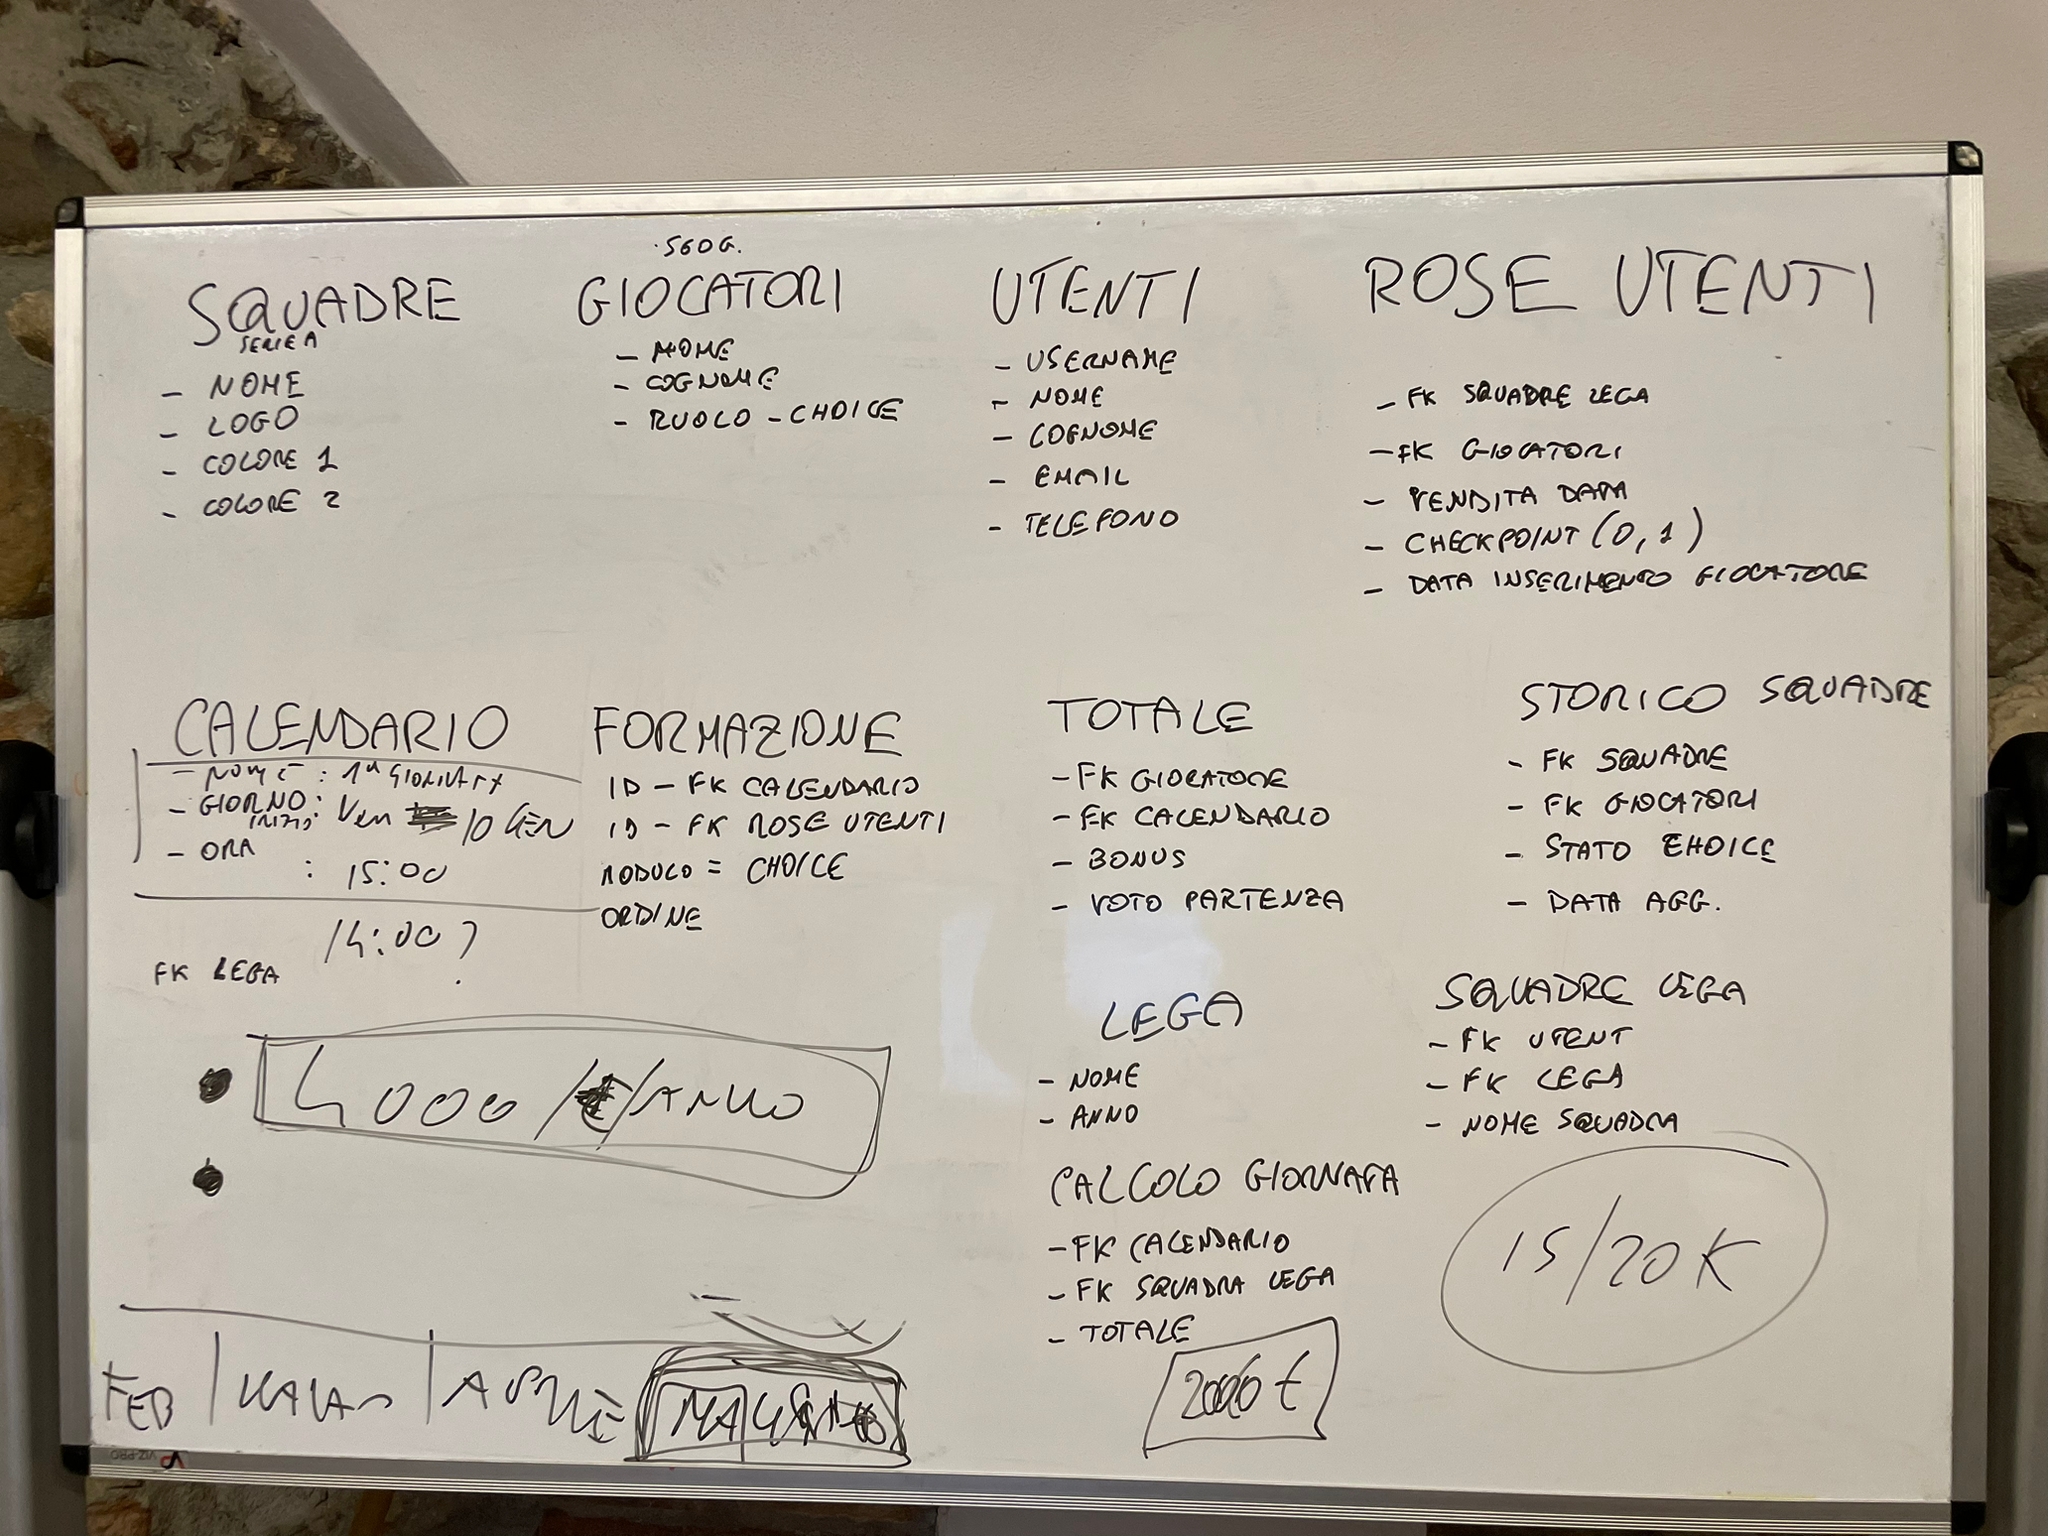 SQUADRE
SERIE A
- NOME
- LOGO
- COLORE 1
- COLORE 2
560G.
GIOCATORI
- NOME
- COGNOME
- RUOLO - CHOICE
UTENTI
- USERNAME
- NOME
- COGNOME
- EMAIL
- TELEFONO
ROSE UTENTI
- FK SQUADRE LEGA
- FK GIOCATORI
- VENDITA DATA
- CHECKPOINT (0,1)
- DATA INSERIMENTO GIOCATORE
CALENDARIO
- NOME : 1ª GIORNATA
- GIORNO INIZIO : Ven 10 GEN
- ORA : 15:00
14:00?
FK LEGA
FORMAZIONE
ID - FK CALENDARIO
ID - FK ROSE UTENTI
MODULO = CHOICE
ORDINE
TOTALE
- FK GIOCATORE
- FK CALENDARIO
- BONUS
- VOTO PARTENZA
STORICO SQUADRE
- FK SQUADRE
- FK GIOCATORI
- STATO CHOICE
- DATA AGG.
LEGA
- NOME
- ANNO
SQUADRE LEGA
- FK UTENT
- FK LEGA
- NOME SQUADRA
4000 /€/ANNO
CALCOLO GIORNATA
- FK CALENDARIO
- FK SQUADRA LEGA
- TOTALE
15/20K
2000 €
FEB
VIZ-PRO